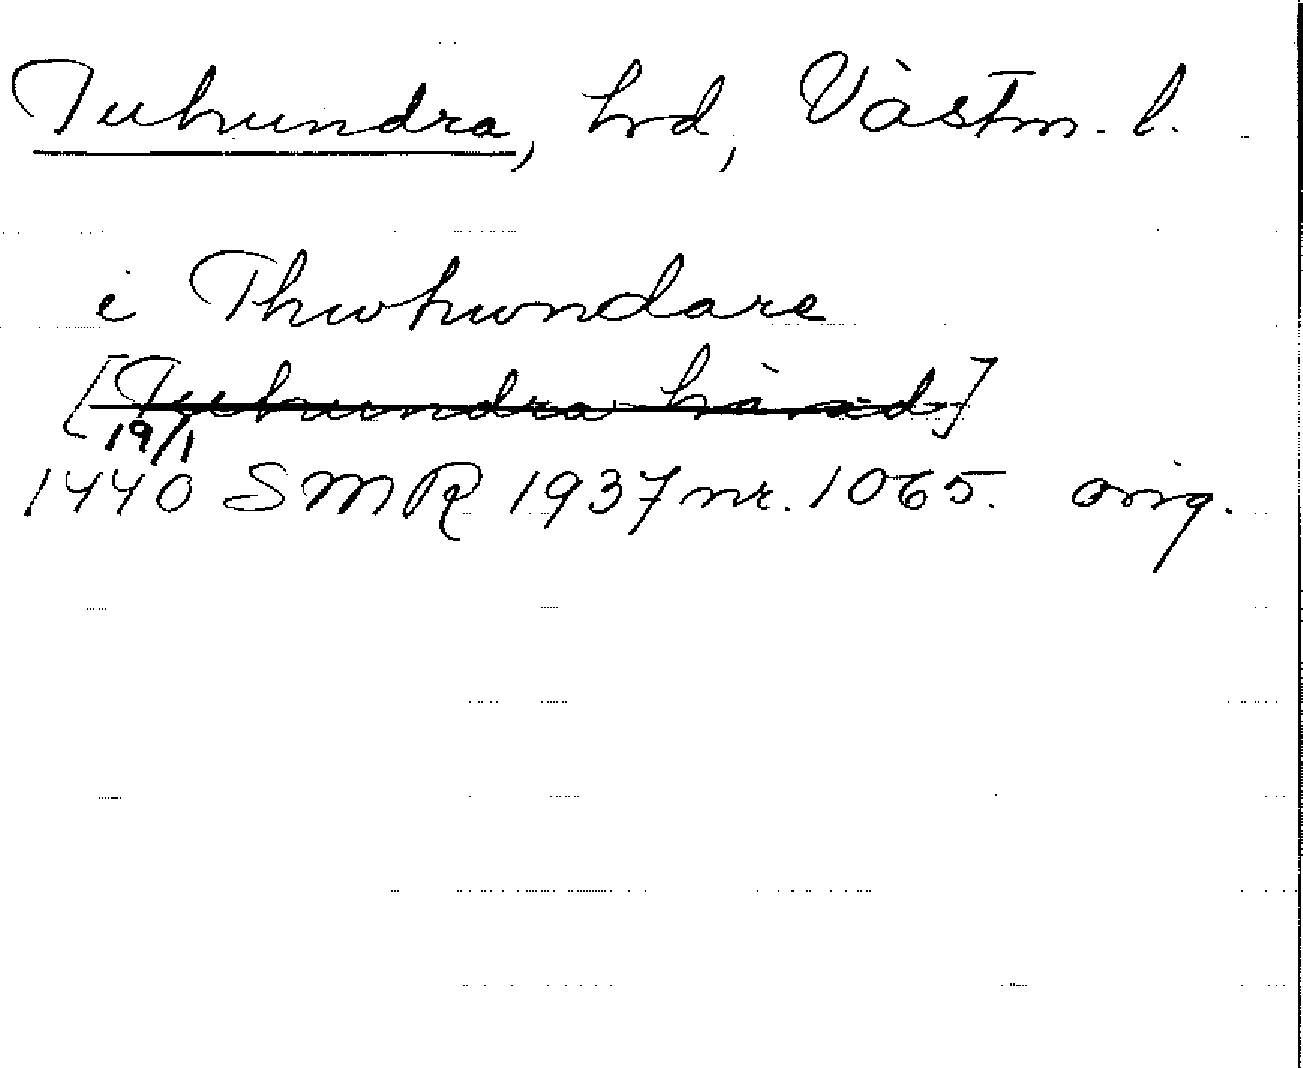 Tuhundra, hrd, Västm. l.
i Thwhwndare
[Tuhundra härad]
19/1
1440 SMR 1937 nr. 1065. orig.